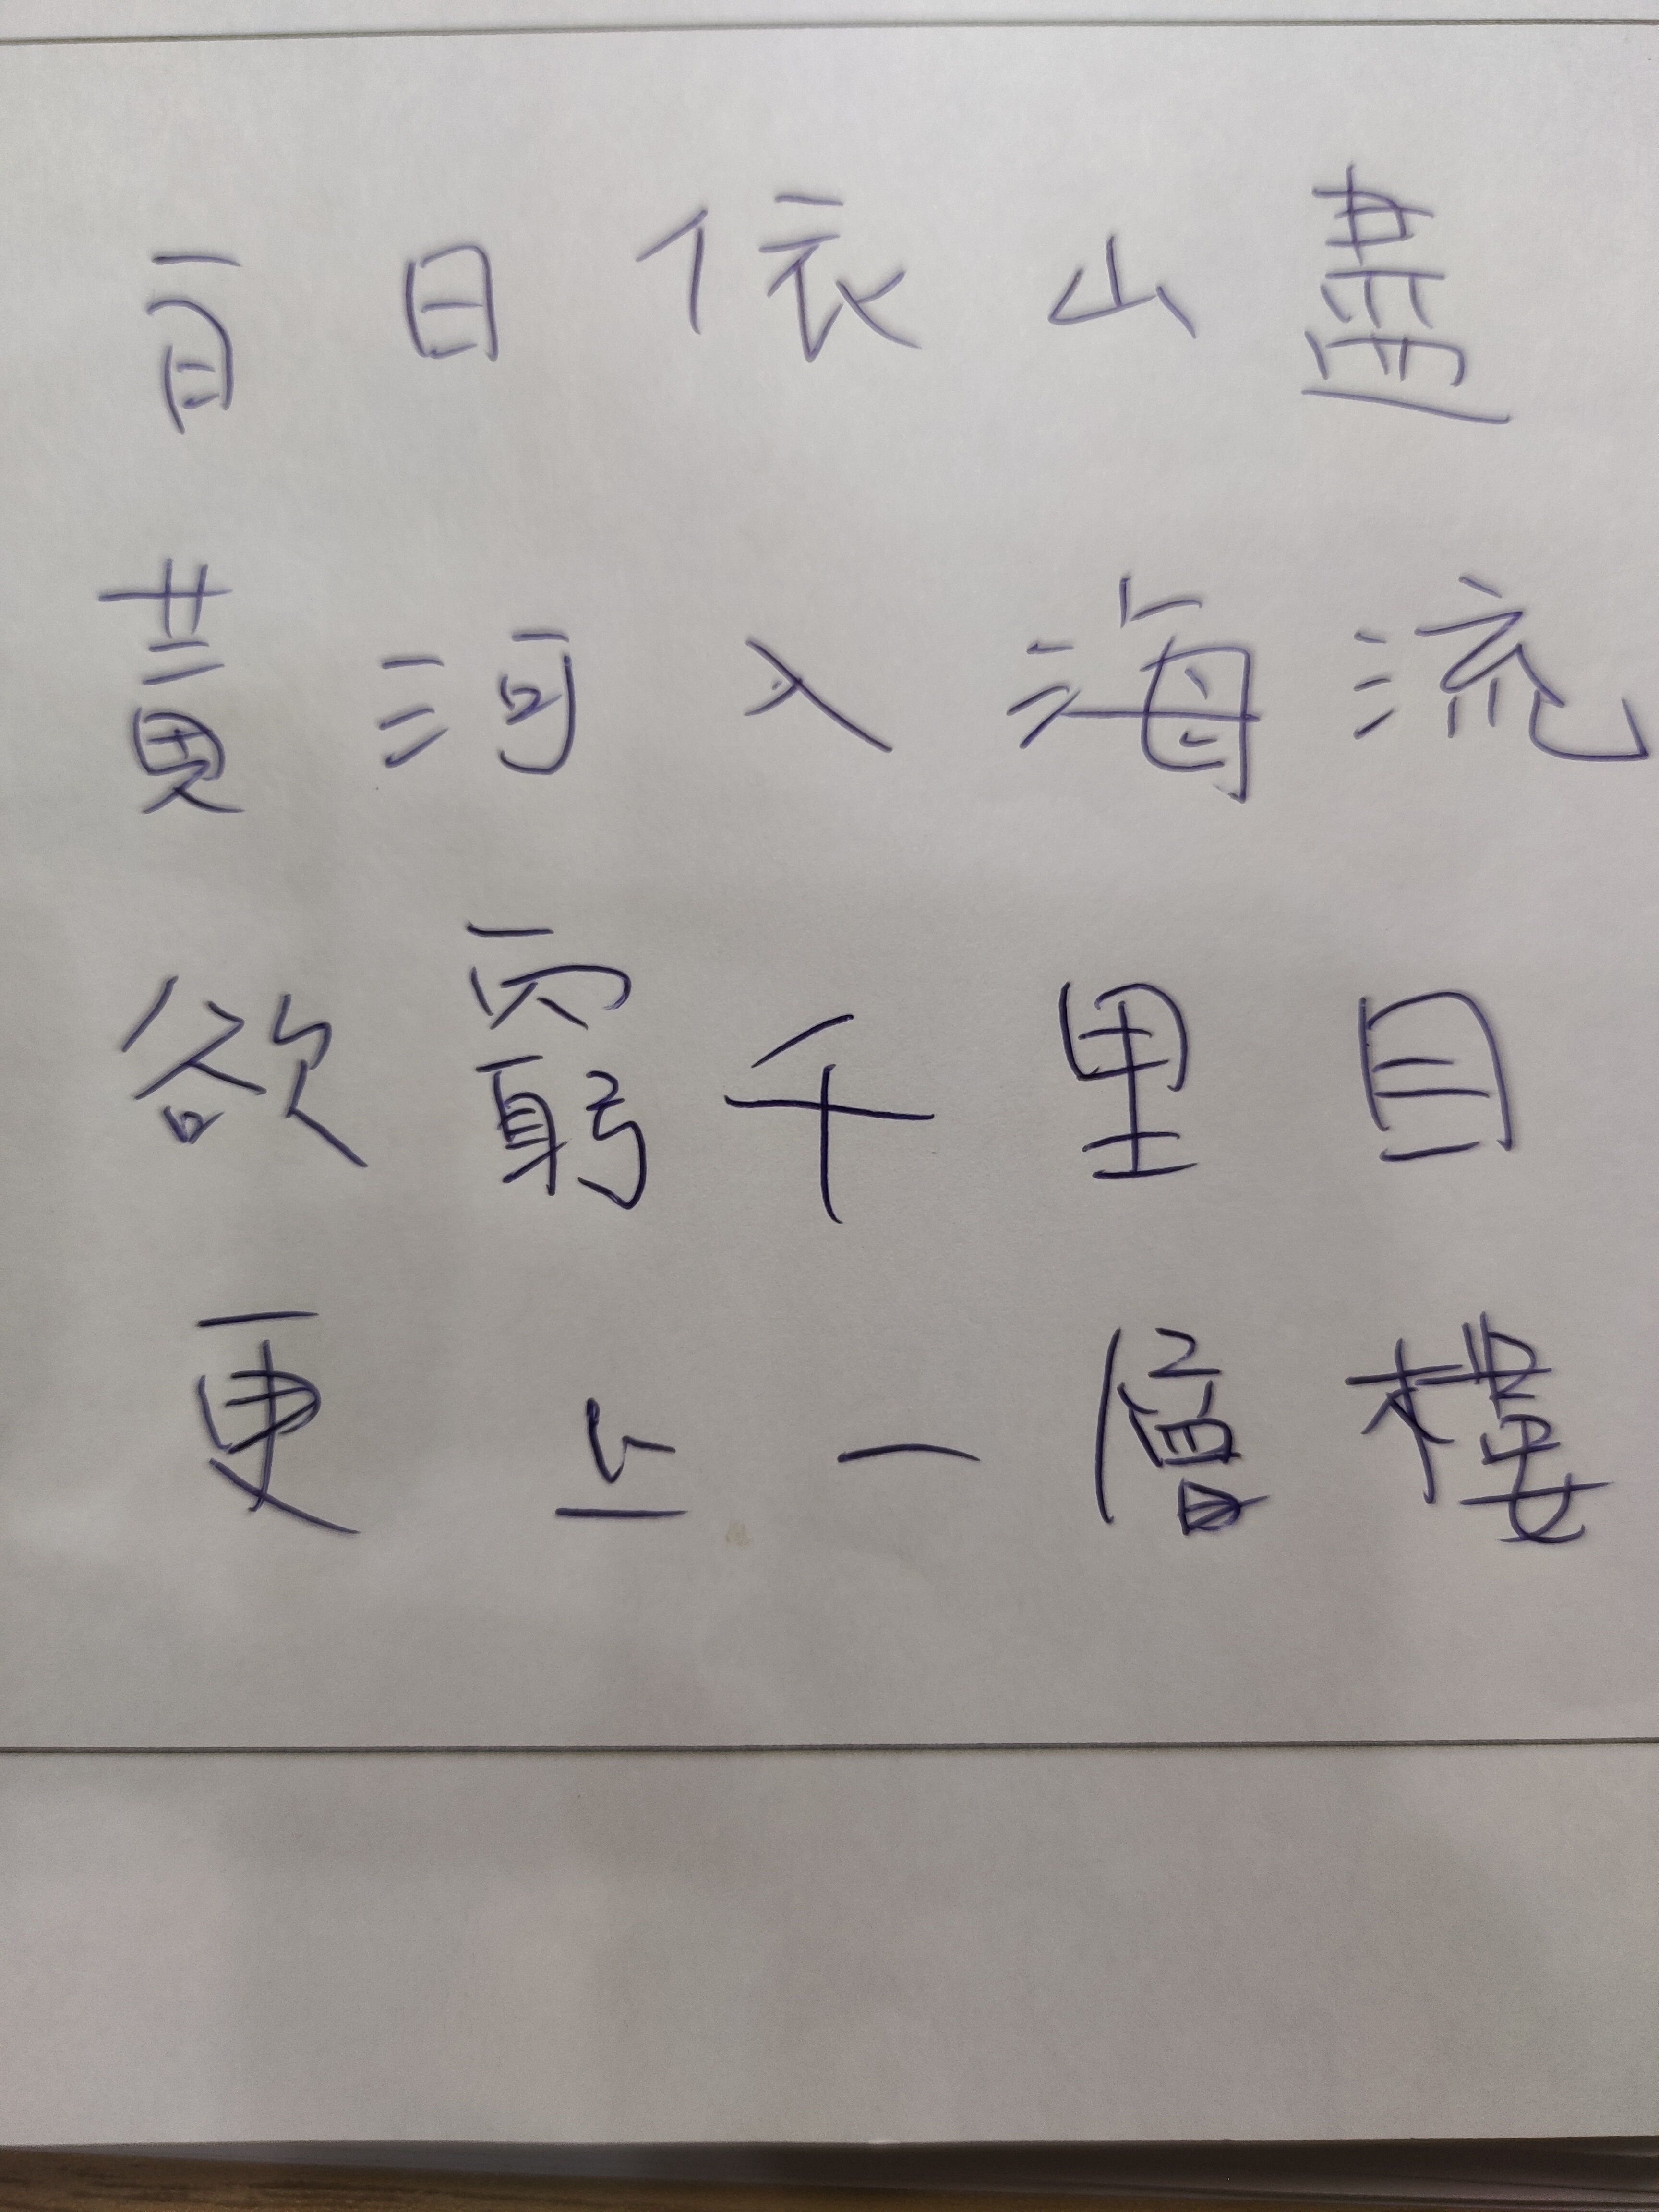 百日依山盡
黃河入海流
欲窮千里目
更上一層樓